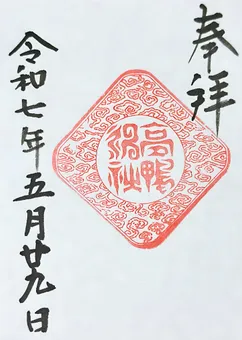 奉拝
高鴨神社
令和七年五月廿九日